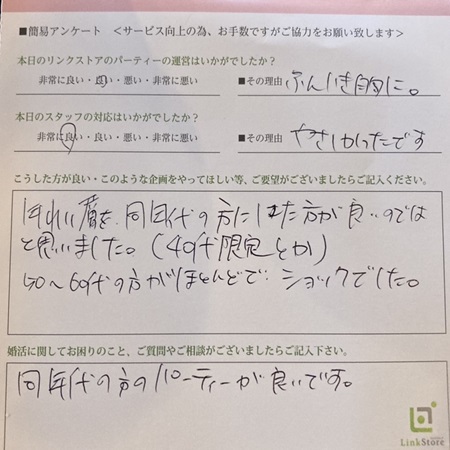 ■簡易アンケート ＜サービス向上の為、お手数ですがご協力をお願い致します＞
本日のリンクストアのパーティーの運営はいかがでしたか?
非常に良い・良い・悪い・非常に悪い
■その理由 ふんいき的に。
本日のスタッフの対応はいかがでしたか?
非常に良い・良い・悪い・非常に悪い
■その理由 やさしかったです
こうした方が良い・このような企画をやってほしい等、ご要望がございましたらご記入ください。
年れい層を同年代の方にした方が良いのでは
と思いました。(40代限定とか)
50～60代の方がほとんどで ショックでした。
婚活に関してお困りのこと、ご質問やご相談がございましたらご記入下さい。
同年代の方のパーティーが良いです。
LinkStore